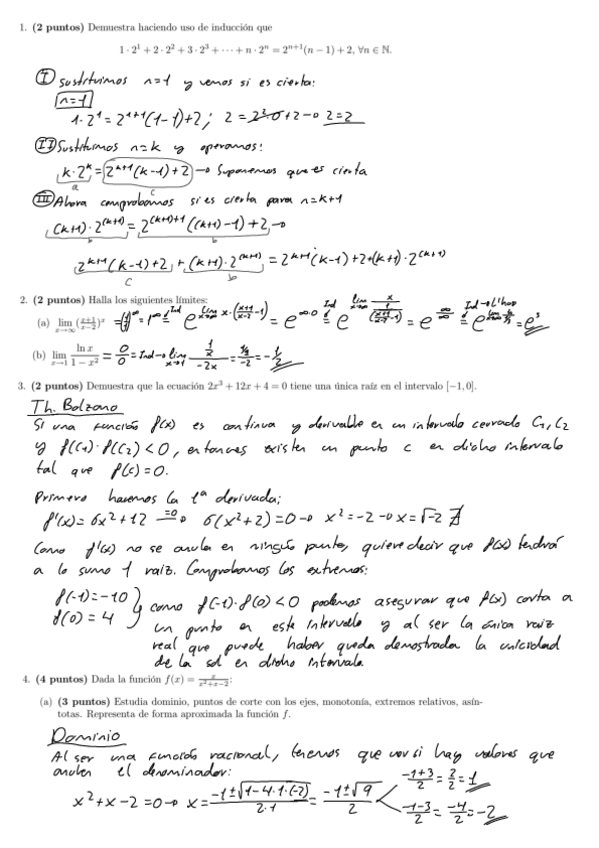 1. (2 puntos) Demuestra haciendo uso de inducción que
1 · 2¹ + 2 · 2² + 3 · 2³ + ··· + n · 2ⁿ = 2ⁿ⁺¹(n − 1) + 2, ∀n ∈ ℕ.
I Sustituimos n=1 y vemos si es cierta:
n=1
1·2¹ = 2¹⁺¹(1−1)+2 ; 2 = 2²·0+2 → 2=2
II Sustituimos n=k y operamos:
k·2ᵏ = 2ᵏ⁺¹(k−1)+2 → Suponemos que es cierta
a c
III Ahora comprobamos si es cierta para n=k+1
(k+1)·2⁽ᵏ⁺¹⁾ = 2⁽ᵏ⁺¹⁾⁺¹((k+1)−1)+2 →
b b
2ᵏ⁺¹(k−1)+2 + (k+1)·2⁽ᵏ⁺¹⁾ = 2ᵏ⁺¹(k−1)+2+(k+1)·2⁽ᵏ⁺¹⁾
c b
2. (2 puntos) Halla los siguientes límites:
(a) lim x→∞ (x+1/x−2)ˣ
(b) lim x→1 ln x / 1 − x² = 0/0 = Ind → lim x→1 1/x / −2x = 1/−2 = −1/2
3. (2 puntos) Demuestra que la ecuación 2x³ + 12x + 4 = 0 tiene una única raíz en el intervalo [−1, 0].
Th. Bolzano
Si una función f(x) es continua y derivable en un intervalo cerrado C₁, C₂
y f(C₁)·f(C₂) < 0, entonces existen un punto c en dicho intervalo
tal que f(c)=0.
Primero hacemos la 1ª derivada;
f'(x)= 6x²+12 =0→ 6(x²+2)=0 → x²=−2 → x=√−2 ∄
Como f'(x) no se anula en ningún punto, quiere decir que f(x) tendrá
a lo sumo 1 raiz. Comprobamos los extremos:
f(-1)=−10
f(0)= 4
como f(-1)·f(0)<0 podemos asegurar que f(x) corta a
un punto en este intervalo y al ser la única raiz
real que puede haber queda demostrada la unicidad
de la sol en dicho intervalo.
4. (4 puntos) Dada la función f(x) = x / x²+x−2:
(a) (3 puntos) Estudia dominio, puntos de corte con los ejes, monotonía, extremos relativos, asín-
totas. Representa de forma aproximada la función f.
Dominio
Al ser una función racional, tenemos que ver si hay valores que
anulen el denominador:
x²+x−2=0 → x = −1±√1−4·1·(−2) / 2·1 = −1±√9 / 2
−1+3/2 = 2/2 = 1
−1−3/2 = −4/2 = −2